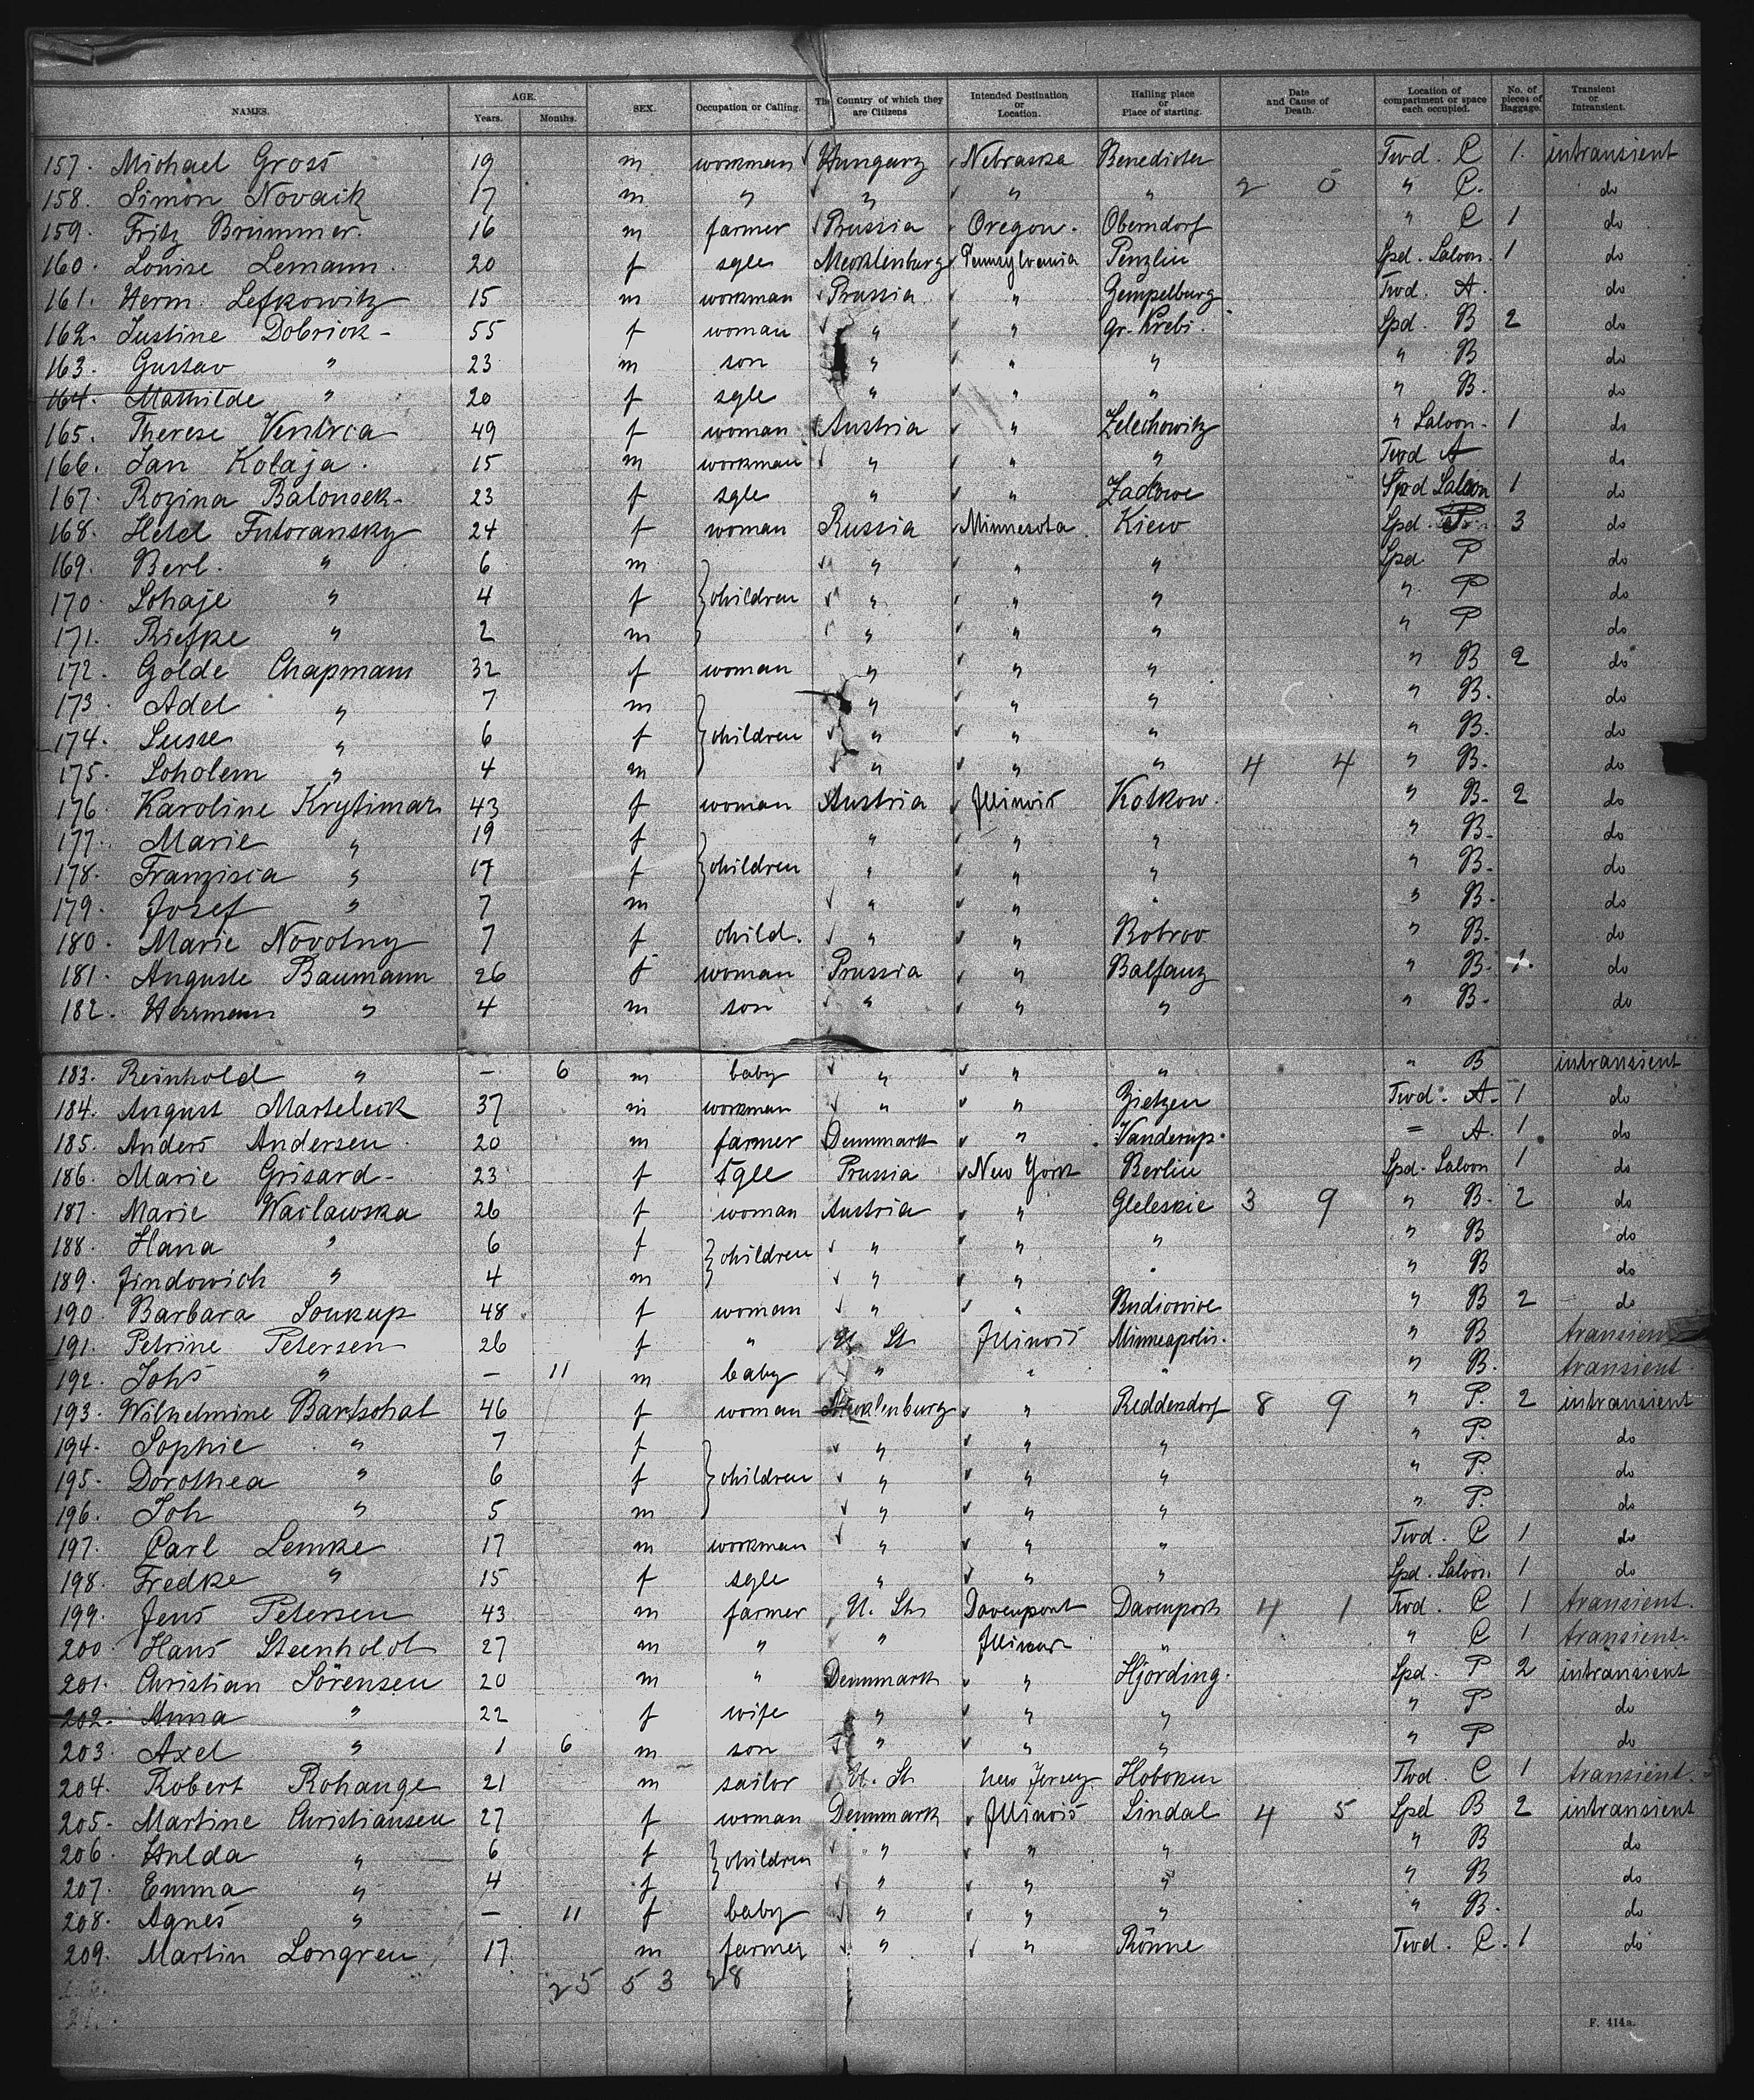 NAMES. AGE. Years. Months. SEX. Occupation or Calling. The Country of which they are Citizens Intended Destination or Location. Hailing place or Place of starting. Date and Cause of Death. Location of compartment or space each occupied. No. of pieces of Baggage. Transient or Intransient.
157. Michael Gross 19 m workman Hungary Nebraska Benedicten Twd. C 1. intransient
158. Simon Novaik 17 m " " " " 2 0 " C. do
159. Fritz Brummer. 16 m farmer Prussia Oregon. Oberndorf " C 1 do
160. Louise Lemann. 20 f sgle Mecklenburg Pennsylvania Penzlin Spd. Saloon. 1 do
161. Herm. Lefkowitz 15 m workman Prussia " Zempelburg Twd. A. do
162. Justine Dobrick - 55 f woman " " gr. Krebs. Spd. B 2 do
163. Gustav " 23 m son " " " " B do
164. Mathilde " 20 f sgle " " " " B. do
165. Therese Ventrca 49 f woman Austria " Zelechowitz " Saloon. 1 do
166. Jan Kolaja. 15 m workman " " " Twd A do
167. Rozina Balonsek - 23 f sgle " " Zadowe Spd Saloon 1 do
168. Hetel Futoransky 24 f woman Russia Minnesota. Kiew Spd. P. 3 do
169. Berl. " 6 m " " " Spd. P do
170. Schaje " 4 f children " " " " P do
171. Riefke " 2 m " " " " P do
172. Golde Chapmann 32 f woman " " " " B 2 do
173. Adel " 7 m " " " " B. do
174. Susse " 6 f children " " " " B. do
175. Scholem " 4 m " " " 4 4 " B. do
176. Karoline Krytimar 43 f woman Austria Illinois Kotkow. " B. 2 do
177. Marie " 19 f " " " " B. do
178. Franzisca " 17 f children " " " " B. do
179. Josef " 7 m " " " " B. do
180. Marie Novotny 7 f child. " " Bobrov " B. do
181. Auguste Baumann 26 f woman Prussia " Balfanz " B. 1. do
182. Herrmann " 4 m son " " " " B. do
183. Reinhold " - 6 m baby " " " " B intransient
184. August Marteleck 37 m workman " " Zietzen Twd. A. 1 do
185. Anders Andersen 20 m farmer Denmmark " Vanderup. = A. 1 do
186. Marie Grisard - 23 f sgle Prussia New York Berlin Spd. Saloon 1 do
187. Marie Waclawska 26 f woman Austria " Gleleskie 3 9 " B. 2 do
188. Hana " 6 f children " " " " B do
189. Jindowich " 4 m " " " " B do
190. Barbara Soukup 48 f woman " " Budiowice " B 2 do
191. Petrine Petersen 26 f " U. St. Illinois Minneapolis. " B transient
192. Johs " - 11 m baby " " " " B. transient
193. Wilhelmine Bartschat 46 f woman Mecklenburg " Reddersdorf 8 9 " P. 2 intransient
194. Sophie " 7 f " " " " P. do
195. Dorothea " 6 f children " " " " P. do
196. Joh " 5 m " " " " P. do
197. Carl Lemke 17 m workman " " " Twd. C 1 do
198. Fredke " 15 f sgle " " " Spd. Saloon. 1 do
199. Jens Petersen 43 m farmer U. St. Davenport Davenport 4 1 Twd. C 1 transient.
200. Hans Steenholdt 27 m " " Illinois " " C 1 transient.
201. Christian Sörensen 20 m " Denmmark " Hjording. Spd. P 2 intransient
202. Anna " 22 f wife " " " " P do
203. Axel " 1 6 m son " " " " P do
204. Robert Rohange 21 m sailor U. St. New Jersey Hoboken Twd. C 1 transient.
205. Martine Christiansen 27 f woman Denmmark Illinois Lindal 4 5 Spd B 2 intransient
206. Hulda " 6 f children " " " " B do
207. Emma " 4 f " " " " B do
208. Agnes " - 11 f baby " " " " B. do
209. Martin Longren 17 m farmer " " Rönne Twd. C. 1 do
25 53 28
F. 414a.